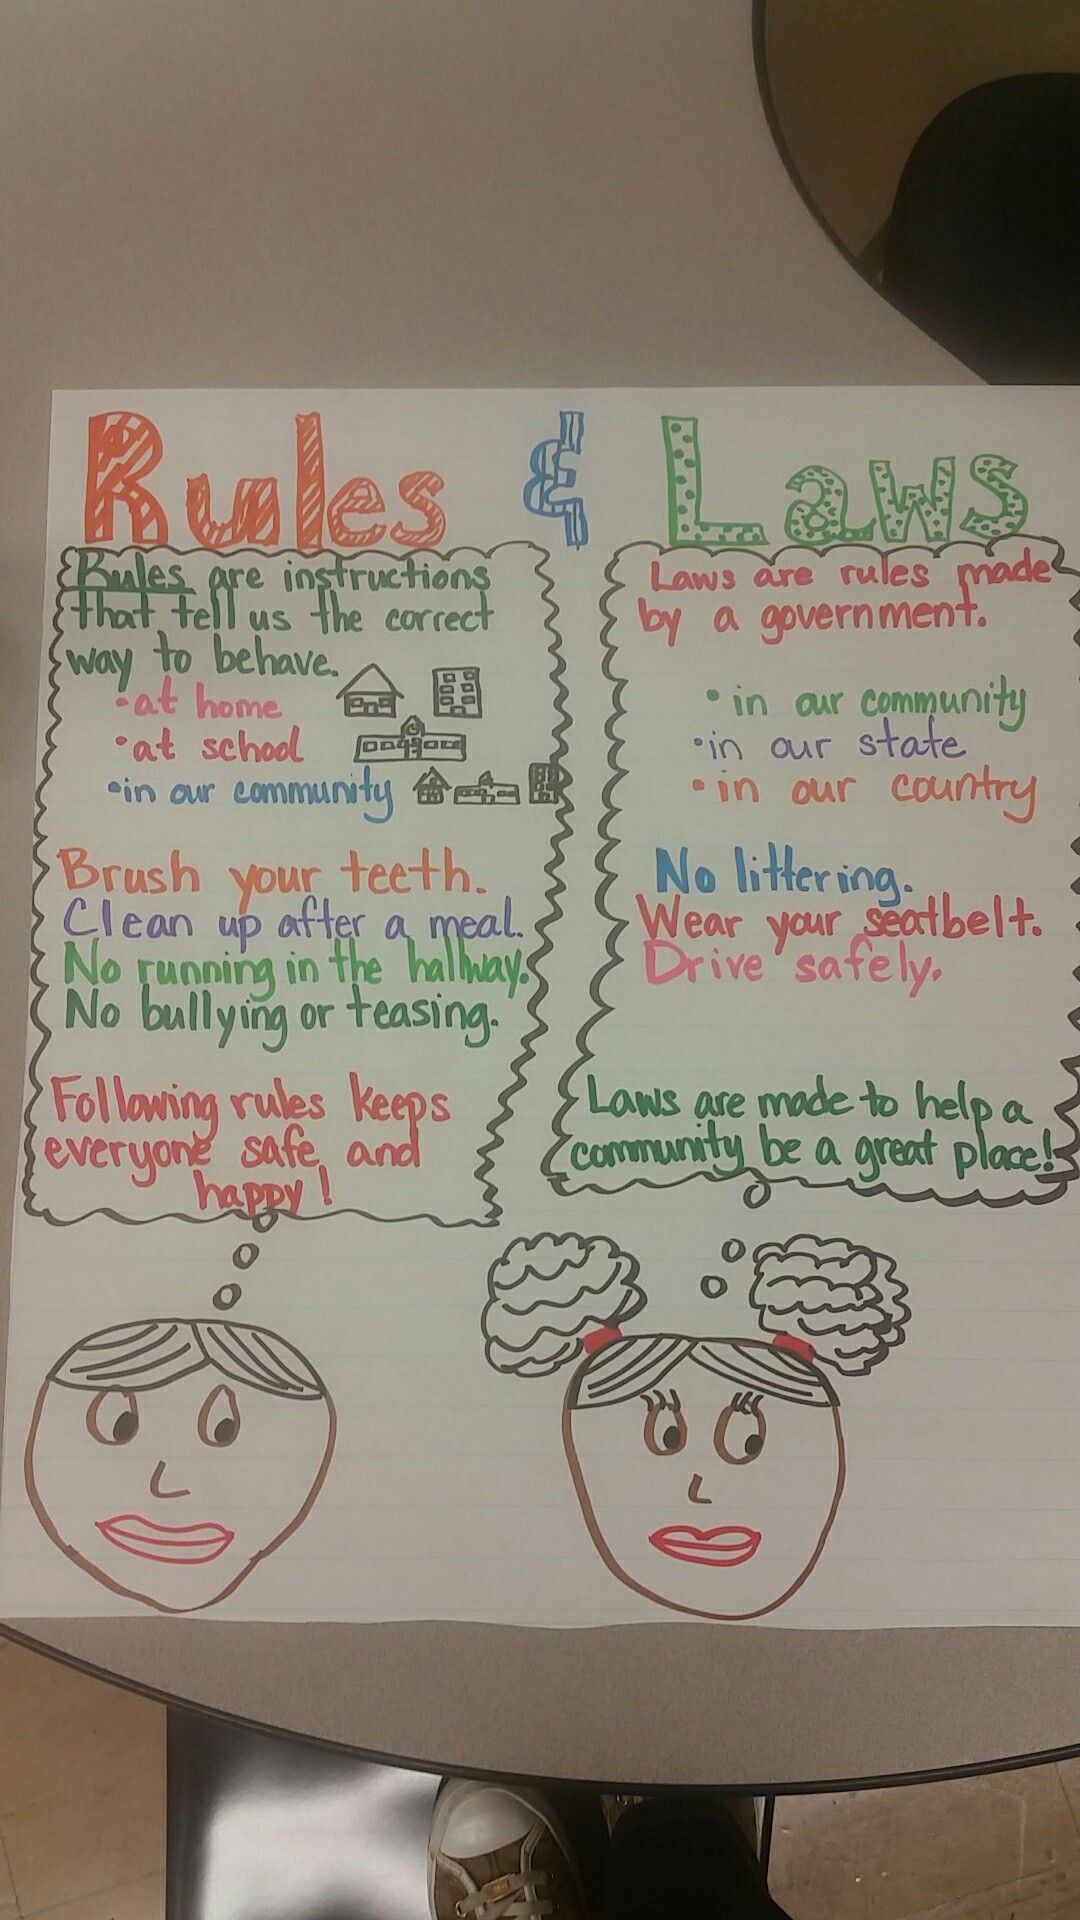 Rules & Laws
Rules are instructions
that tell us the correct
way to behave.
•at home
•at school
•in our community
Brush your teeth.
Clean up after a meal.
No running in the hallway.
No bullying or teasing.
Following rules keeps
everyone safe and
happy!
Laws are rules made
by a government.
•in our community
•in our state
•in our country
No littering.
Wear your seatbelt.
Drive safely.
Laws are made to help a
community be a great place!